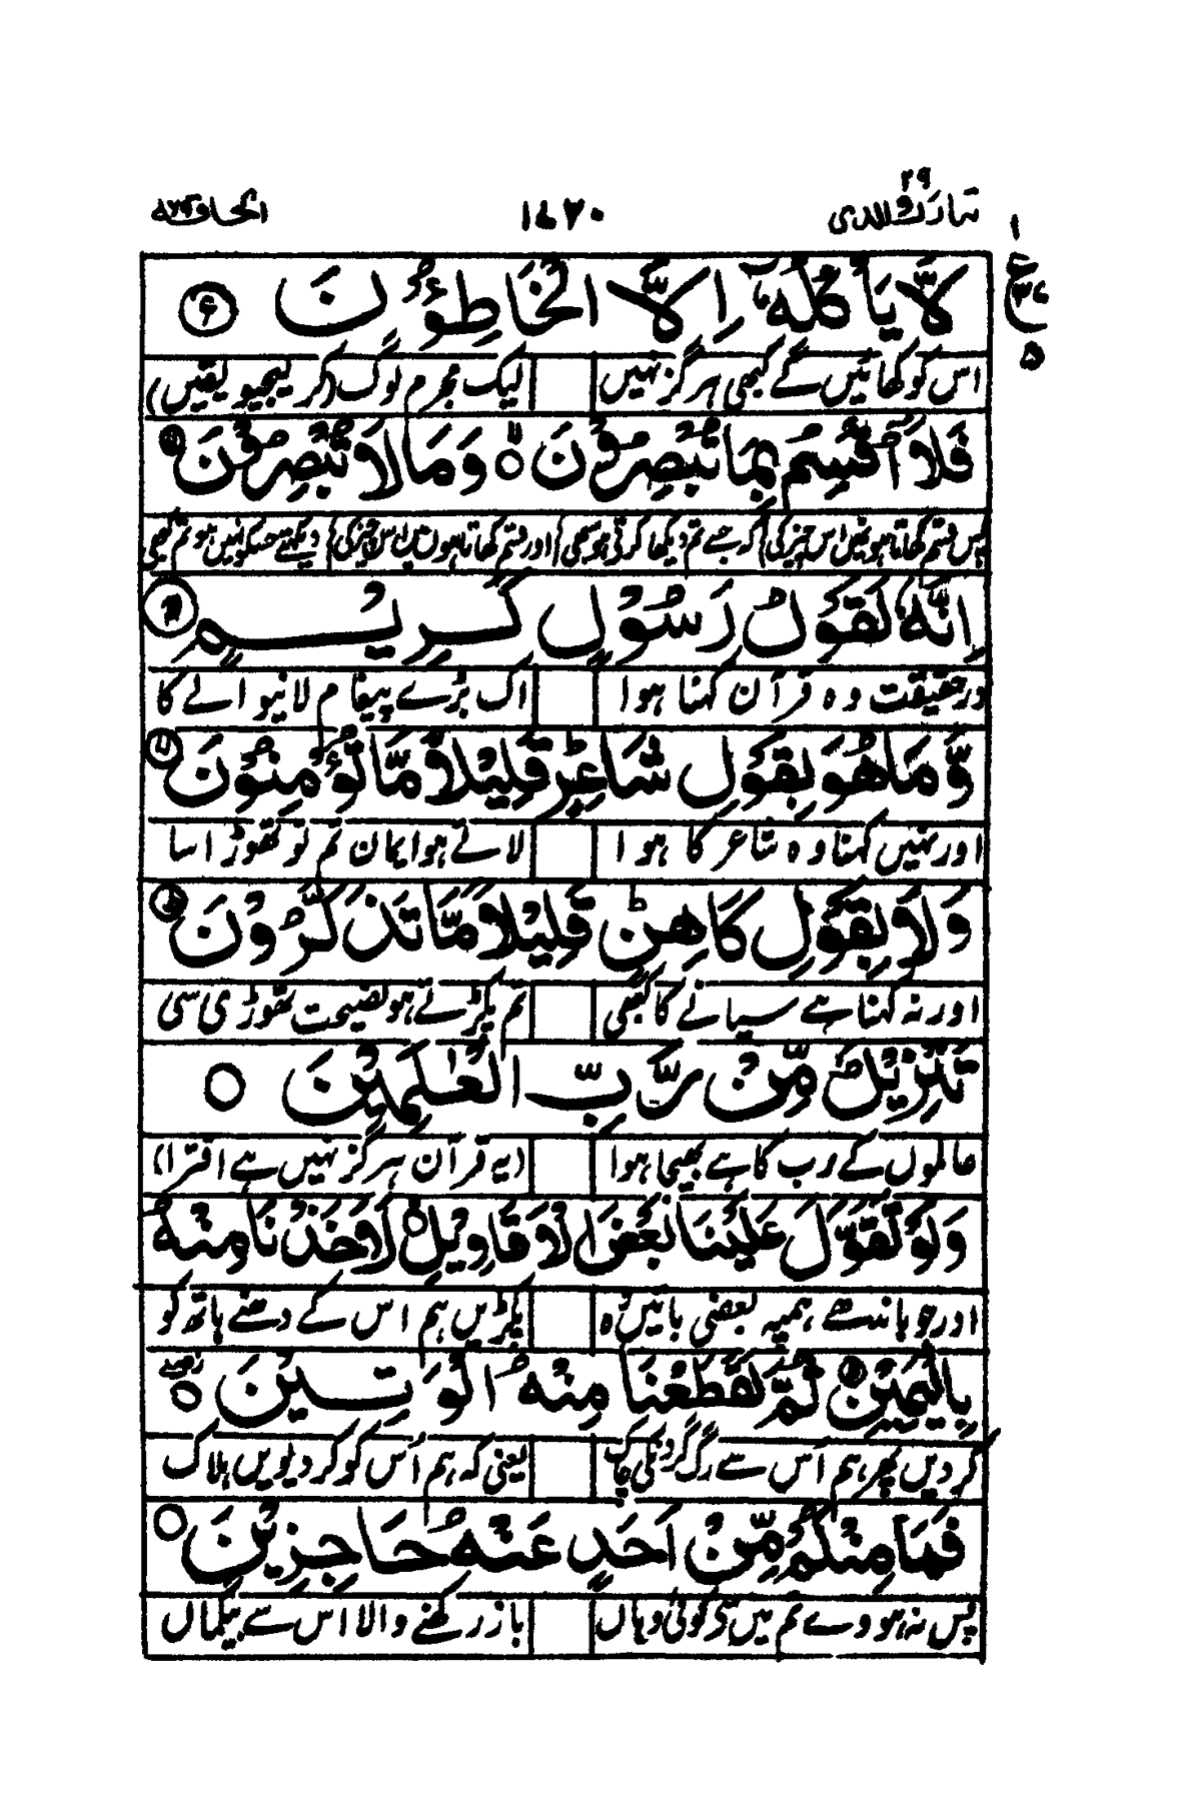 تبارک الذی ۲۹ ۱۴۷۰ الحاقة ۶۹
لَّا يَأْكُلُهٗٓ اِلَّا الْخَاطِـُٔوْنَ
اس کو کھائیں گے کبھی ہرگز نہیں لیک مجرم لوگ (کر لیجیو یقیں)
فَلَآ اُقْسِمُ بِمَا تُبْصِرُوْنَ ۝ وَمَا لَا تُبْصِرُوْنَ
پس قسم کھاتا ہوں میں اس چیز کی کہ جسے تم دیکھا کرتے ہو سبھی اور قسم کھاتا ہوں میں اس چیز کی دیکھتے جسکو نہیں ہو تم کبھی
اِنَّهٗ لَقَوْلُ رَسُوْلٍ كَرِيْمٍ
درحقیقت وہ قرآن کہنا ہوا اک بڑے پیغام لانیوالے کا
وَّمَا هُوَ بِقَوْلِ شَاعِرٍ قَلِيْلًا مَّا تُؤْمِنُوْنَ
اور نہیں کہنا وہ شاعر کا ہوا لاتے ہو ایمان تم تو تھوڑا سا
وَلَا بِقَوْلِ كَاهِنٍ قَلِيْلًا مَّا تَذَكَّرُوْنَ
اور نہ کہنا ہے سیانے کا کبھی تم پکڑتے ہو نصیحت تھوڑی سی
تَنْزِيْلٌ مِّنْ رَّبِّ الْعٰلَمِيْنَ ۝
عالموں کے رب کا ہے بھیجا ہوا (یہ قرآن ہرگز نہیں ہے افترا)
وَلَوْ تَقَوَّلَ عَلَيْنَا بَعْضَ الْاَقَاوِيْلِ ۝ لَاَخَذْنَا مِنْهُ
اور جو باندھے ہمپہ بعضی باتیں وہ پکڑیں ہم اس کے دھنے ہاتھ کو
بِالْيَمِيْنِ ثُمَّ لَقَطَعْنَا مِنْهُ الْوَتِيْنَ ۝
کر دیں پھر ہم اُس سے رگ گردنکی چاک یعنی کہ ہم اُس کو کر دیویں ہلاک
فَمَا مِنْكُمْ مِّنْ اَحَدٍ عَنْهُ حَاجِزِيْنَ ۝
پس نہ ہووے تم میں سے کوئی وہاں باز رکھنے والا اس سے بیگماں